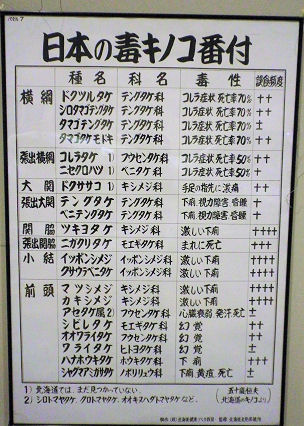 日本の毒キノコ番付
種名 科名 毒性 誤食頻度
横綱 ドクツルタケ テングタケ科 コレラ症状 死亡率70% ++
シロタマゴテングタケ テングタケ科 コレラ症状 死亡率70% +
タマゴテングタケ テングタケ科 コレラ症状 死亡率70% ±
タマゴタケモドキ テングタケ科 コレラ症状 死亡率70%
張出横綱 コレラタケ 1) フウセンタケ科 コレラ症状 死亡率50% +
ニセクロハツ 1) ベニタケ科 コレラ症状 死亡率50% +
大関 ドクササコ 1) キシメジ科 手足の指先に激痛 ++
張出大関 テングタケ テングタケ科 下痢、視力障害 昏睡 +
ベニテングタケ テングタケ科 下痢、視力障害 昏睡 +
関脇 ツキヨタケ キシメジ科 激しい下痢 ++++
張出関脇 ニガクリタケ モエギタケ科 まれに死亡 +++
小結 イッポンシメジ イッポンシメジ科 激しい下痢 ++++
クサウラベニタケ イッポンシメジ科 激しい下痢 ++++
前頭 マツシメジ キシメジ科 激しい下痢 +++
カキシメジ キシメジ科 激しい下痢 +++
アセタケ属 2) フウセンタケ科 心臓衰弱 発汗死亡 ±
シビレタケ モエギタケ科 幻覚 ++
オオワライタケ フウセンタケ科 幻覚 ++
ワライタケ ヒトヨタケ科 幻覚 ±
ハナホウキタケ ホウキタケ科 下痢 +++
シャグマアミガサタケ ノボリリュウ科 下痢 黄疸 死亡 ±
1) 北海道では、まだ見つかっていない
2) シロトマヤタケ、クロトマヤタケ、オオキヌハダトマヤタケなど、
五十嵐恒夫
(北海道のキノコより)